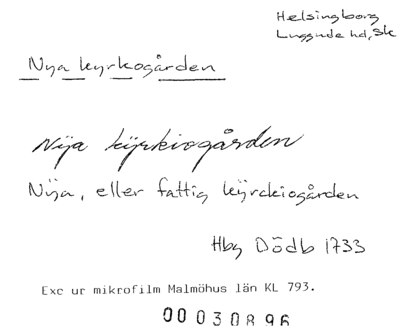 Helsingborg
Luggude hd, Sk
Nya kyrkogården
Nÿa kÿrkiogården
Nÿa, eller fattig kÿrckiogården
Hbg Dödb 1733
Exc ur mikrofilm Malmöhus län KL 793.
00030896